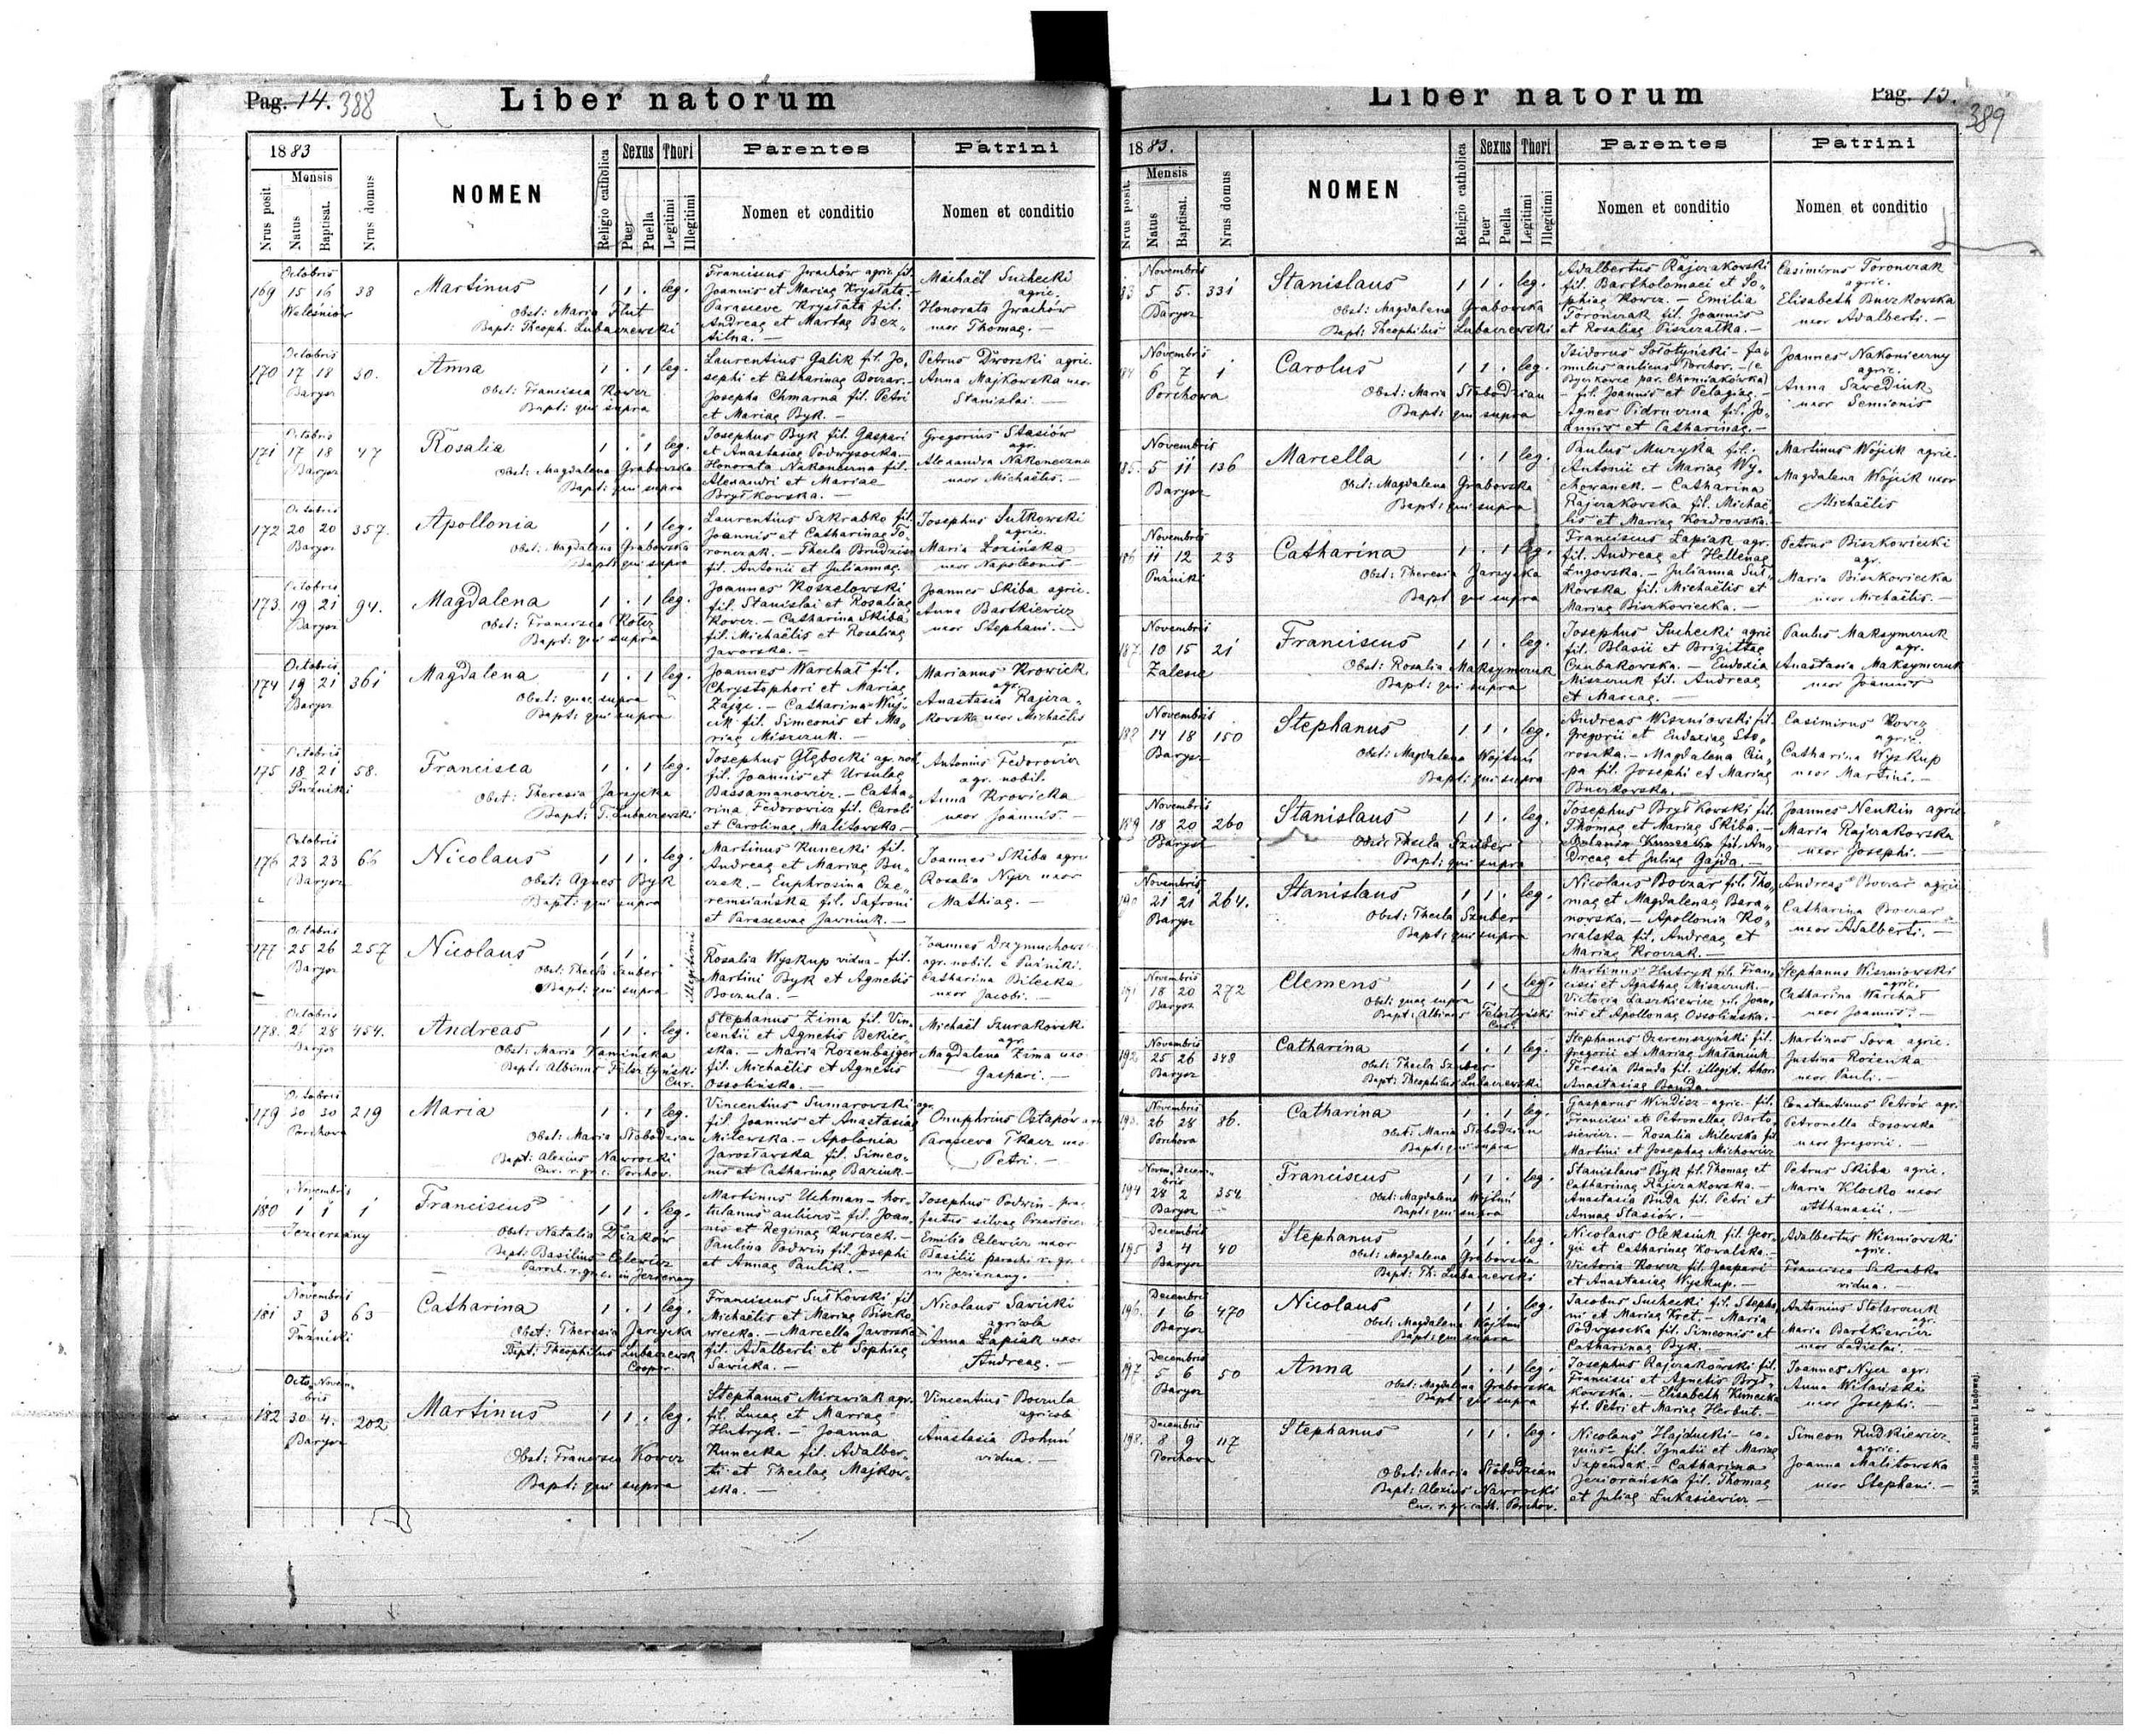 Pag. 14. 388
Liber natorum
1883
Mensis
Nrus posit
Natus
Baptisat.
Nrus domus
NOMEN
Religio catholica
Sexus
Puer
Puella
Thori
Legitimi
Illegitimi
Parentes
Nomen et conditio
Patrini
Nomen et conditio
Octobris
169 15 16 38 Martinus 1 1 . leg.
Obst: Maria Flut
Bapt: Theoph. Lubaczewski
Franciscus Iwachów agric. fil.
Joannis et Mariae Krystata.
Parasceve Krystata fil.
Andreae et Marthae Bez„
tilna. —
Michaël Suchecki
agric.
Honorata Iwachów
uxor Thomae. —
Octobris
170 17 18 30. Anna 1 . 1 leg.
Barysz
Obst: Francisca Kowcz
Bapt: qui supra
Laurentius Galik fil. Jo„
sephi et Catharinae Boczar. —
Josepha Chmarna fil. Petri
et Mariae Byk. —
Petrus Dworski agric.
Anna Majkowska uxor
Stanislai. —
Octobris
171 17 18 47 Rosalia 1 . 1 leg.
Barysz
Obst: Magdalena Grabowska
Bapt: qui supra
Josephus Byk fil. Gaspari
et Anastasiae Podwysocka. —
Honorata Nakoneczna fil.
Alexandri et Mariae
Brytkowska. —
Gregorius Stasiów
agr.
Alexandra Nakoneczna
uxor Michaëlis. —
Octobris
172 20 20 357. Apollonia 1 . 1 leg.
Barysz
Obst: Magdalena Grabowska
Bapt: qui supra
Laurentius Szkrabko fil.
Joannis et Catharinae To„
ronczak. — Thecla Brudzisz
fil. Antonii et Juliannae
Josephus Sutkowski
agric.
Maria Łozińska
uxor Napoleonis —
Octobris
173. 19 21 94. Magdalena 1 . 1 leg.
Barysz
Obst: Francisca Kowcz
Bapt: qui supra
Joannes Koszelowski
fil. Stanislai et Rosaliae
Kowcz. — Catharina Skiba
fil. Michaëlis et Rosaliae
Jaworska. —
Joannes Skiba agric.
Anna Bartkiewicz
uxor Stephani. —
Octobris
174 19 21 361 Magdalena 1 . 1 leg.
Barysz
Obst: quae supra
Bapt: qui supra
Joannes Warchał fil.
Chrystophori et Mariae
Zając. — Catharina Wój„
cik fil. Simeonis et Ma„
riae Miszczuk. —
Marianus Krowicki
agr.
Anastasia Rajcza„
kowska uxor Michaëlis
Octobris
175 18 21 58. Francisca 1 . 1 leg.
Pużniki
Obst: Theresia Jarzycka
Bapt: T. Lubaczewski
Josephus Głębocki agr. nob.
fil. Joannis et Ursulae
Bassamanowicz. — Catha„
rina Fedorowicz fil. Caroli
et Carolinae Malitowska —
Antonius Fedorovicz
agr. nobil.
Anna Krowicka
uxor Joannis —
Octobris
176 23 23 66 Nicolaus 1 1 . leg.
Barysz
Obst: Agnes Byk
Bapt: qui supra
Martinus Kunecki fil.
Andreae et Mariae Bu„
czek. — Euphrosina Cze„
remsiańska fil. Safroni
et Parascevae Jawniuk. —
Joannes Skiba agric
Rosalia Nycz uxor
Mathiae. —
Octobris
177 25 26 257 Nicolaus 1 1 . Illegitimi
Barysz
Obst: Thecla Szuber
Bapt: qui supra
Rosalia Wyskup vidua — fil.
Martini Byk et Agnetis
Boczula. —
Joannes Drzymuchows
agr. nobil. e Pużniki.
Catharina Bilecka
uxor Jacobi. —
Octobris
178. 25 28 454. Andreas 1 1 . leg.
Barysz
Obst: Maria Kamińska
Bapt: Albinus Felsztyński
Cur.
Stephanus Zima fil. Vin„
centii et Agnetis Bekier„
ska. — Maria Rozenbajger
fil. Michaëlis et Agnetis
Ossolińska. —
Michaël Szurakowski
agr.
Magdalena Zima uxo
Gaspari. —
Octobris
179 30 30 219 Maria 1 . 1 leg.
Porchova
Obst: Maria Słobodzian
Bapt: Alexius Nawrocki
Cur. r. gr. c. Porchov.
Vincentius Sumarowski agr.
fil. Joannis et Anastasiae
Milewska. — Apolonia
Jarosławska fil. Simeo„
nis et Catharinae Baziuk. —
Onuphrius Ostapów
Parasceva Tkacz uxo
Petri. —
Novembris
180 1 1 1 Franciscus 1 1 . leg.
Jezierzany
Obst: Natalia Diaków
Bapt: Basilius Celewicz
Paroch. r. gr. c. in Jezierzany
Martinus Uchman — hor„
tulanus aulicus — fil. Joan„
nis et Reginae Kurczek. —
Paulina Podwin fil. Josephi
et Annae Paulik. —
Josephus Podwin — prae
fectus silvae
Emilia Celewicz uxor
Basilii parochi r. gr. c.
in Jezierzany. —
Novembris
181 3 3 63 Catharina 1 . 1 leg.
Pużniki
Obst: Theresia Jarzycka
Bapt: Theophilus Lubaczewski
Cooper.
Franciscus Sutkowski fil.
Michaëlis et Mariae Biszko„
wiecka. — Marcella Jaworska
fil. Adalberti et Sophiae
Sawicka. —
Nicolaus Sawicki
agricola
Anna Łapiak uxor
Andreae. —
Octo„ Novem„
bris
182 30 4. 202 Martinus 1 1 . leg.
Barysz
Obst: Francisca Kowcz
Bapt: qui supra
Stephanus Mirzwiak agr.
fil. Lucae et Mariae
Hutryk. — Joanna
Kunecka fil. Adalber„
ti et Theclae Majkow„
ska. —
Vincentius Boczula
agricola
Anastasia Bohuń
vidua. —
Liber natorum
Pag. 15. 389
1883.
Mensis
Nrus posit.
Natus
Baptisat.
Nrus domus
NOMEN
Religio catholica
Sexus
Puer
Puella
Thori
Legitimi
Illegitimi
Parentes
Nomen et conditio
Patrini
Nomen et conditio
Novembris
5 5. 331 Stanislaus 1 1 . leg.
Barysz
Obst: Magdalena Grabowska
Bapt: Theophilus Lubaczewski
Adalbertus Rajczakowski
fil. Bartholomaei et So„
phiae Kowcz. — Emilia
Toronczak fil. Joannis
et Rosaliae Piszczatka. —
Casimirus Toronczak
agric.
Elisabeth Buczkowska
uxor Adalberti. —
Novembris
6 7 1 Carolus 1 1 . leg.
Porchowa
Obst: Maria Słobodzian
Bapt: qui supra
Isidorus Sołotyński — fa„
mulus aulicus Porchov. — (e
Byczkowce par. Chomiakówka)
— fil. Joannis et Pelagiae. —
Agnes Pidruczna fil. Jo„
annis et Catharinae. —
Joannes Nakoneczny
agric.
Anna Szwediuk
uxor Semionis
Novembris
185. 5 11 136 Marcella 1 . 1 leg.
Barysz
Obst: Magdalena Grabowska
Bapt: qui supra
Paulus Muzyka fil.
Antonii et Mariae Wy„
chowanek. — Catharina
Rajczakowska fil. Michaë
lis et Mariae Kozdrowska. —
Martinus Wójcik agric.
Magdalena Wójcik uxor
Michaëlis
Novembris
186 11 12 23 Catharina 1 . 1 leg.
Pużniki
Obst: Theresia Jarzycka
Bapt: qui supra
Franciscus Łapiak agr.
fil. Andreae et Hellenae
Ługowska. — Julianna Sut„
kowska fil. Michaëlis et
Mariae Biszkowiecka. —
Petrus Biszkowiecki
agr.
Maria Biszkowiecka
uxor Michaëlis. —
Novembris
187. 10 15 21 Franciscus 1 1 . leg.
Zalesie
Obst: Rosalia Maksymczuk
Bapt: qui supra
Josephus Suchecki agric
fil. Blasii et Brigittae
Czubakowska. — Eudoxia
Miszczuk fil. Andreae
et Mariae. —
Paulus Maksymczuk
agr.
Anastasia Maksymczuk
uxor Joannis
Novembris
188 14 18 150 Stephanus 1 1 . leg.
Barysz
Obst: Magdalena Wójtuń
Bapt: qui supra
Andreas Wiszniowski fil.
Gregorii et Eudoxiae Sto„
roszka. — Magdalena Ciu„
pa fil. Josephi et Mariae
Buczkowska. —
Casimirus Kowcz
agric.
Catharina Wyskup
uxor Martini. —
Novembris
189 18 20 260 Stanislaus 1 1 . leg.
Barysz
Obst: Thecla Szuber
Bapt: qui supra
Josephus Brytkowski fil.
Thomae et Mariae Skiba. —
Melania Kunecka fil. An„
dreae et Juliae Gajda. —
Joannes Nenkin agric
Maria Rajczakowska
uxor Josephi. —
Novembris
190 21 21 264. Stanislaus 1 1 . leg.
Barysz
Obst: Thecla Szuber
Bapt: qui supra
Nicolaus Boczar fil. Tho„
mae et Magdalenae Bara„
nowska. — Apollonia Ko„
walska fil. Andreae et
Mariae Krowczak. —
Andreas Boczar agric
Catharina Boczar
uxor Adalberti. —
Novembris
191 18 20 272 Clemens 1 1 . leg.
Barysz
Obst: quae supra
Bapt: Albinus Felsztyński
Cur.
Martinus Hutryk fil. Fran„
cisci et Agathae Miszczuk. —
Victoria Laszkiewicz fil. Joan„
nis et Apolloniae Ossolińska. —
Stephanus Wiszniowski
agric.
Catharina Warchał
uxor Joannis. —
Novembris
192 25 26 348 Catharina 1 . 1 leg.
Barysz
Obst: Thecla Szuber
Bapt: Theophilus Lubaczewski
Stephanus Czeremszyński fil.
Gregorii et Mariae Mataniuk
Teresia Banda fil. illegit. thori
Anastasiae Banda.
Martinus Sowa agric.
Justina Roicuka
uxor Pauli. —
Novembris
193. 26 28 86. Catharina 1 . 1 leg.
Porchova
Obst: Maria Słobodzian
Bapt: qui supra
Gasparus Windisz — agric. fil.
Francisci et Petronellae Barto„
siewicz. — Rosalia Milewska fil.
Martini et Josephae Michowicz
Constantinus Petrów agr.
Petronella Łosowska
uxor Gregorii. —
Novem„ Decem„
bris
194 28 2 352 Franciscus 1 1 . leg.
Barysz
Obst: Magdalena Wójtuń
Bapt: qui supra
Stanislaus Byk fil. Thomae et
Catharinae Rajczakowska. —
Anastasia Buda fil. Petri et
Annae Stasiów. —
Petrus Skiba agric.
Maria Klocko uxor
Athanasii. —
Decembris
195 3 4 40 Stephanus 1 1 . leg.
Barysz
Obst: Magdalena Grabowska
Bapt: Th. Lubaczewski
Nicolaus Oleksiuk fil. Geor„
gii et Catharinae Kowalska. —
Victoria Kowcz fil. Gaspari
et Anastasiae Wyskup. —
Adalbertus Wiszniowski
agric.
Francisca Szkrabko
vidua. —
Decembris
196. 1 6 470 Nicolaus 1 1 . leg.
Barysz
Obst: Magdalena Wójtuń
Bapt: qui supra
Jacobus Suchecki fil. Stepha
ni et Mariae Kret. — Maria
Podwysocka fil. Simeonis et
Catharinae Byk. —
Antonius Stolarczuk
agr.
Maria Bartkiewicz
uxor Ladislai. —
Decembris
197. 5 6 50 Anna 1 . 1 leg.
Barysz
Obst: Magdalena Grabowska
Bapt: qui supra
Josephus Rajczakowski fil.
Francisci et Agnetis Bryt„
kowska. — Elisabeth Kunecka
fil. Petri et Mariae Herbut. —
Joannes Nycz agr.
Anna Witańska
uxor Josephi. —
Decembris
198. 8 9 117 Stephanus 1 1 . leg.
Porchova
Obst: Maria Słobodzian
Bapt: Alexius Nawrocki
Cur. r. gr. cath. Porchov.
Nicolaus Hajducki — co„
quus — fil. Ignatii et Mariae
Szpendak. — Catharina
Jeziorańska fil. Thomae
et Juliae Łukasiewicz —
Simeon Rudkiewicz
agric.
Joanna Malitowska
uxor Stephani. —
Nakładem drukarni Ludowej.